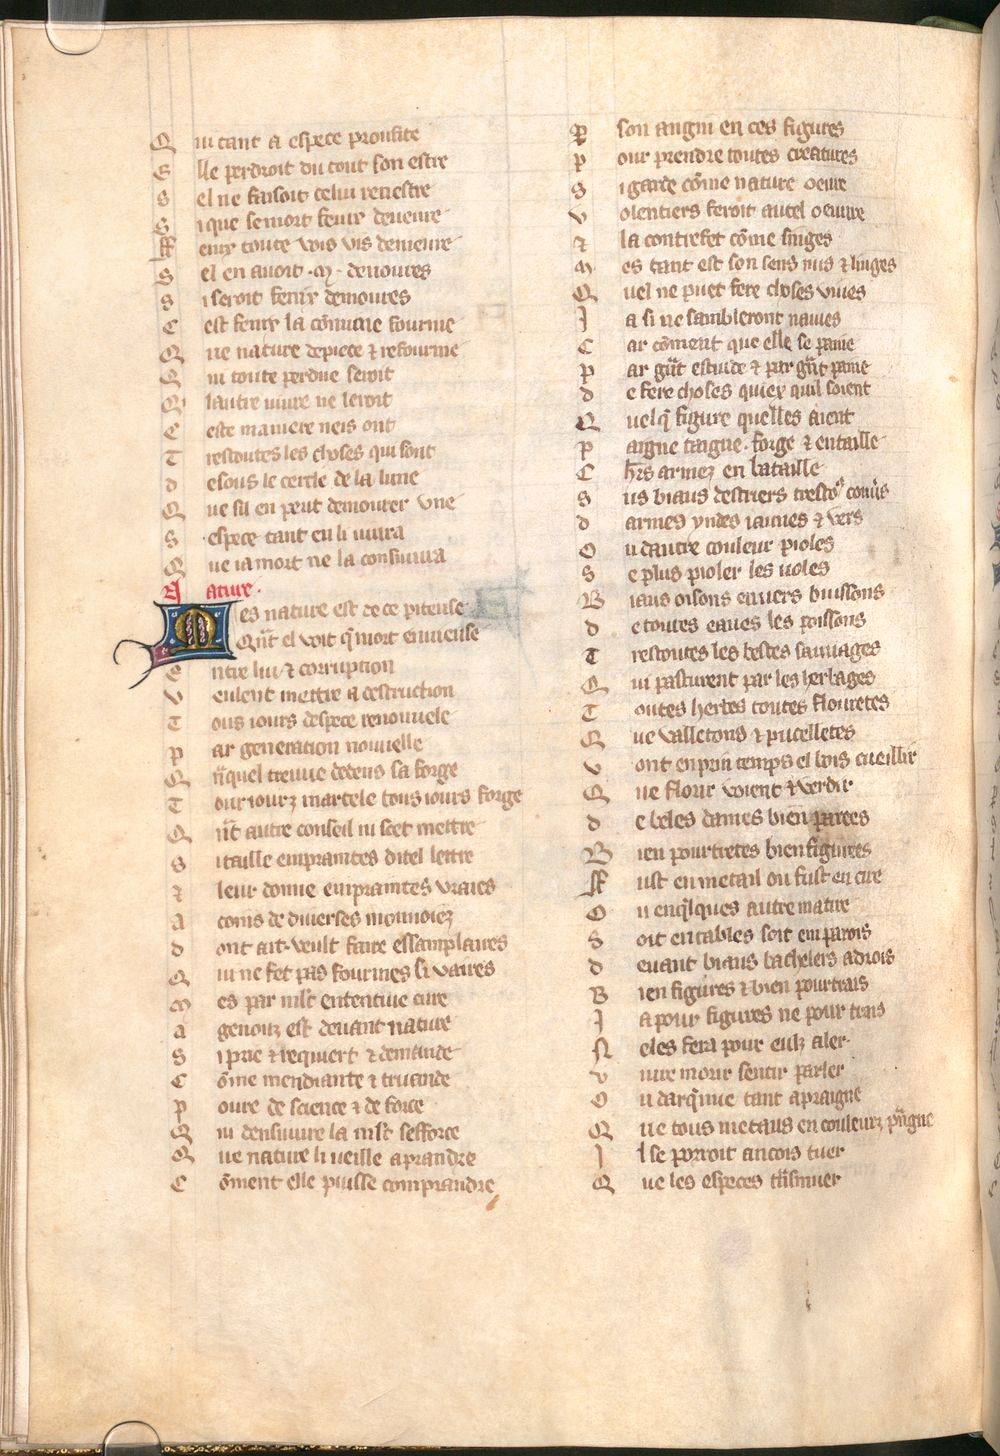 Qui tant a espece proufite
Elle perdroit du tout son estre
Sel ne faisoit celui renestre
Si que se mort fenix deveure
Fenix toute vois vis demeure
Sel en avoit .M. devoures
Si seroit fenix demoures
Cest fenix la cōmune fourme
Que nature depiece ⁊ refourme
Qui toute perdue seroit
Qui lautre vivre ne leroit
Ceste maniere neis ont
Trestoutes les choses qui sont
Desous le cercle de la lune
Que sil en peut demourer une
Sespece tant en li vivra
Que ja mort ne la consuivra
Nature
Mes nature est de ce piteuse
Qūt el voit q̄ mort envieuse
Entre lui ⁊ corrupcion
Veulent mettre a destruction
Tous jours despece renouvele
Par generation nouvelle
Qūquel treuve dedens sa forge
Tourjourz martele tous jours forge
Qūt autre conseil ni scet mettre
Si taille empraintes ditel lettre
⁊ leur donne empraintes vraies
A coins de diverses monnoiez
Dont art veult faire essamplaires
Qui ne fet pas fourmes si vaires
Mes par mlt ententive cure
A genouz est devant nature
Si prie ⁊ requiert ⁊ demande
Cōme mendiante ⁊ truande
Povre de science ⁊ de force
Qui densuivre la mlt sefforce
Que nature li veille aprandre
Cōment elle puisse comprandre
P son angin en ces figures
Pour prendre toutes creatures
Si garde cōme nature oeuvre
Volentiers feroit autel oeuvre
⁊ la contrefet cōme singes
Mes tant est son sens nus ⁊ linges
Quel ne puet fere choses vives
Ja si ne sambleront naives
Car cōment que elle se paine
Par gūt estuide ⁊ par gūt paine
De fere choses quiex quil soient
Quelq̄ figure quelles aient
Paigne taigne forge ⁊ entaille
Chrs armez en bataille
Sus biaus destriers trestoꝰ couūs
Darmes yndes jaunes ⁊ vers
Ou dautre couleur pioles
Se plus pioler les voles
Biaus oisons en vers buissons
De toutes eaues les poissons
Trestoutes les bestes sauvages
Qui pasturent par les herbages
Toutes herbes toutes flouretes
Que valletons ⁊ pucelletes
Vont en prin temps el bois cueillir
Que flourir voient ⁊ verdir
De beles dames bien parees
Bien pourtretes bien figurees
Fust en metail ou fust en cire
Ou en q̄lques autre matire
Soit en tables soit en parois
Devant biaus bachelers adrois
Bien figures ⁊ bien pourtrais
Ja pour figures ne pour trais
Neles fera pour eulz aler
Vivre mouvir sentir parler
Ou darq̄mie tant apraigne
Que tous metaus en couleurz p̄ngne
Il se porroit ancois tuer
Que les especes tn̄smuer